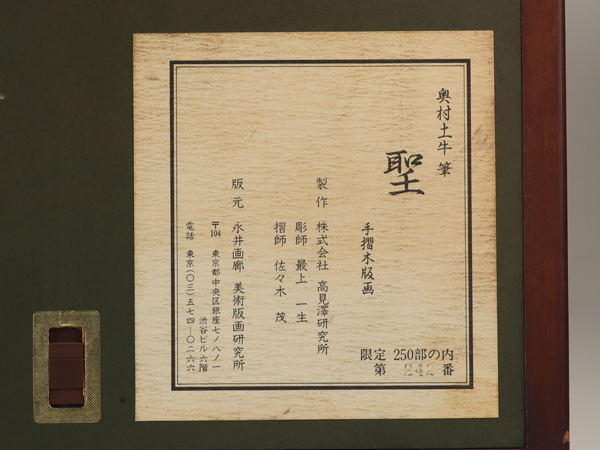 奥村土牛 筆
聖
手摺木版画
限定 250部の内
第 242 番
製作 株式会社 高見澤研究所
彫師 最上 一生
摺師 佐々木 茂
版元 永井画廊 美術版画研究所
〒104 東京都中央区銀座七ノ八ノ一
渋谷ビル六階
電話 東京(〇三)五七四一〇二六六